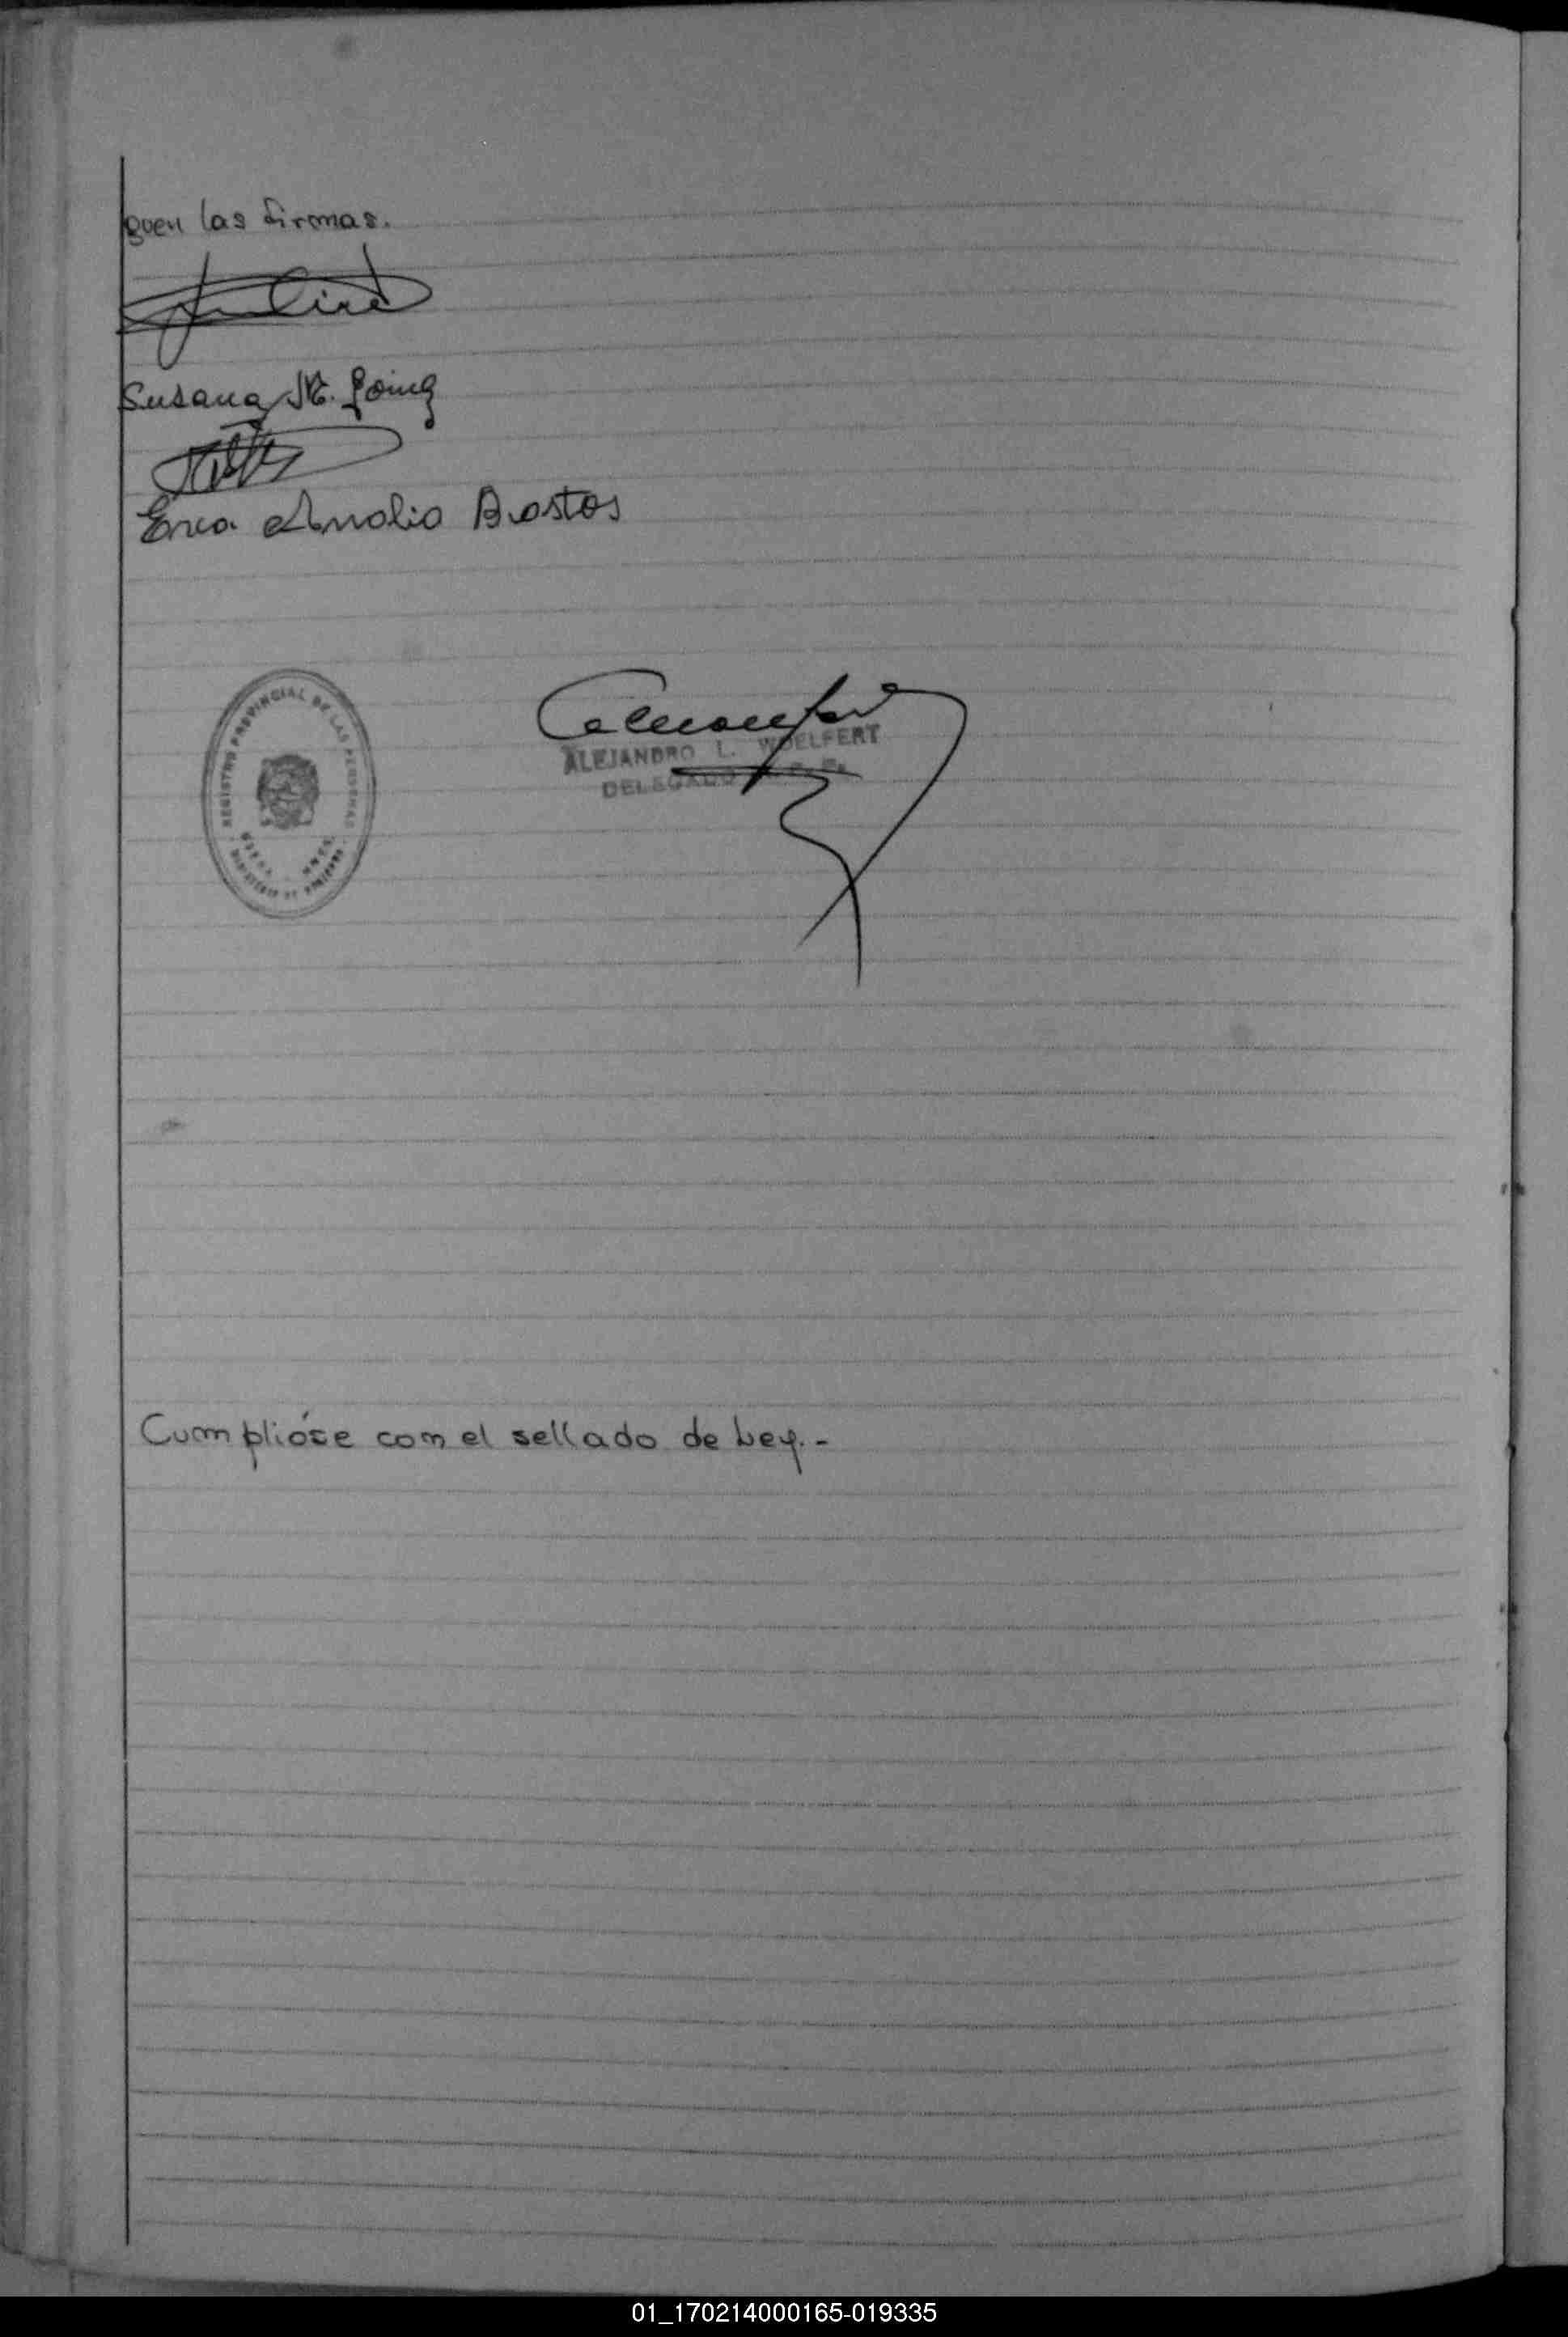 guen las firmas.
Susana M.
Erica Analia Bastos
REGISTRO PROVINCIAL DE LAS PERSONAS
ALEJANDRO L. WOELFERT
DELEGADO
Cumplióse con el sellado de Ley.-
01_170214000165-019335